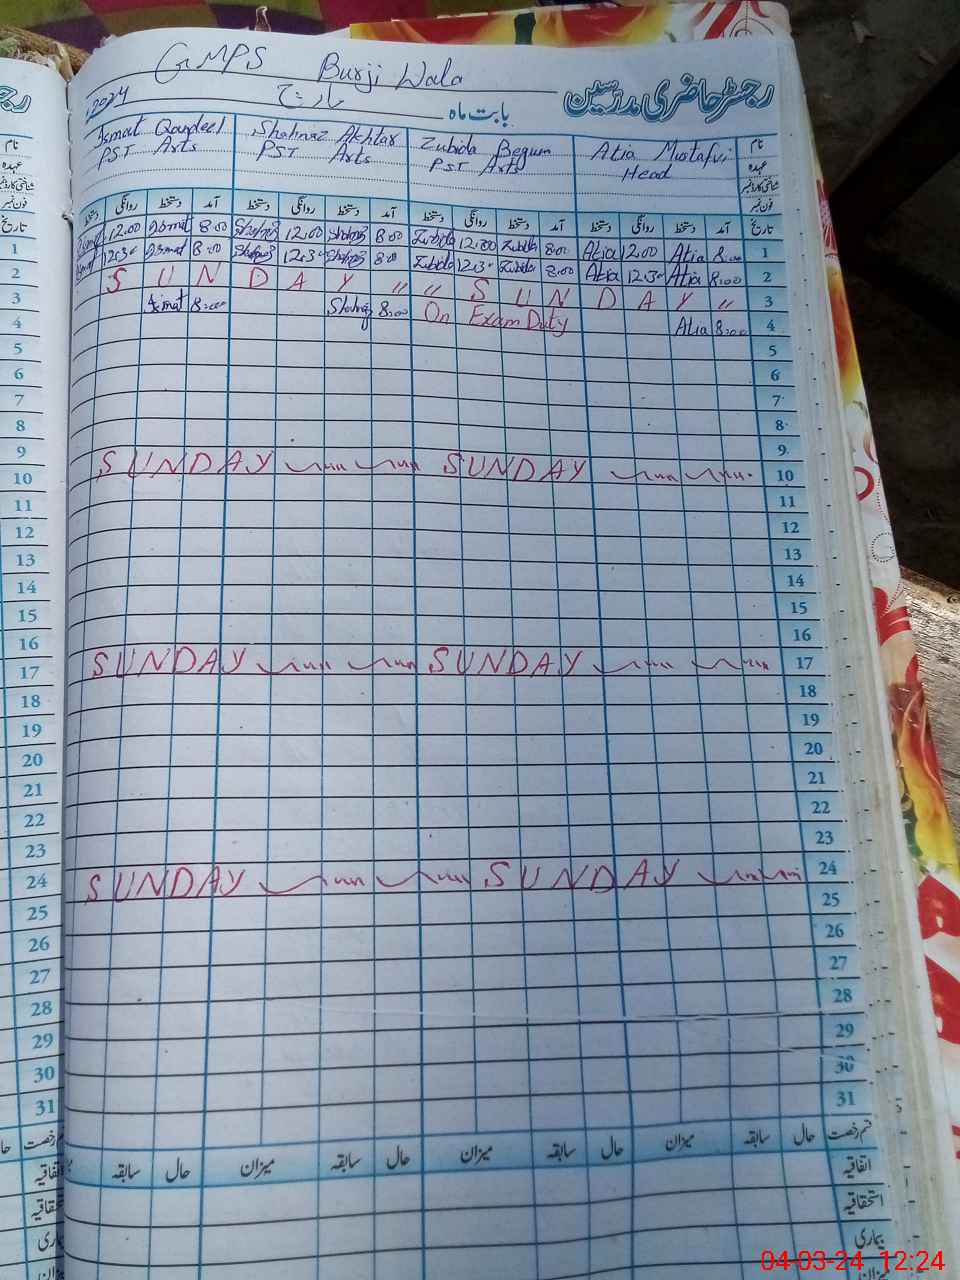 GMPS Burji Wala
رجسٹر حاضری مدرسین
بابت ماہ مارچ 2024
نام Atia Mustafvi Zubida Begum Shahnaz Akhtar Ismat Qandeel
عہدہ Head PST Arts PST Arts PST Arts
شناختی کارڈ نمبر
فون نمبر
تاریخ آمد دستخط روانگی دستخط آمد دستخط روانگی دستخط آمد دستخط روانگی دستخط آمد دستخط روانگی دستخط
1 8:00 Atia 12.00 Atia 8.00 Zubida 12.00 Zubida 8.00 Shahnaz 12.00 Shahnaz 8.00 Ismat 12.00 Ismat
2 8:00 Atia 12.30 Atia 8.00 Zubida 12.30 Zubida 8.00 Shahnaz 12.30 Shahnaz 8.00 Ismat 12.30 Ismat
3 SUNDAY " " SUNDAY "
4 8:00 Atia On Exam Duty 8:00 Shahnaz 8:00 Ismat
5
6
7
8
9
10 SUNDAY SUNDAY
11
12
13
14
15
16
17 SUNDAY SUNDAY
18
19
20
21
22
23
24 SUNDAY SUNDAY
25
26
27
28
29
30
31
قسم رخصت حال سابقہ میزان حال سابقہ میزان حال سابقہ میزان حال سابقہ
اتفاقیہ
استحقاقیہ
بیماری
میزان
04-03-24 12:24